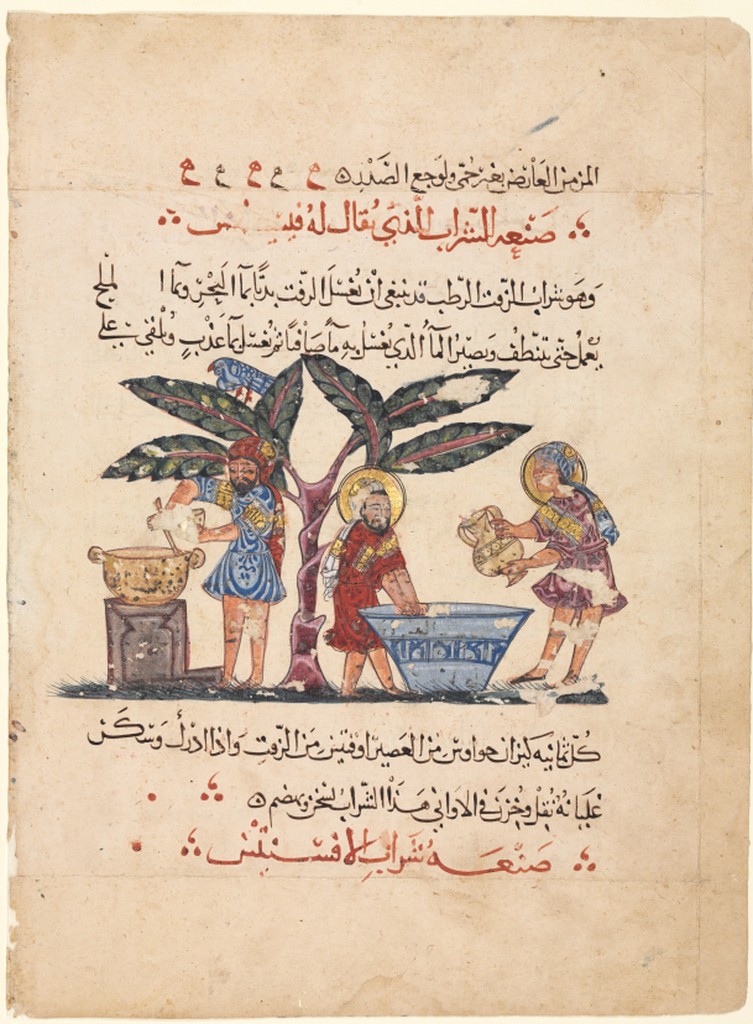 المزمن العارض بغير حمى ولوجع الصدر ه
صنعه الشراب الذي يقال له
وهو شراب الزفت الرطب قد ينبغي ان يغسل الزفت بدئًا بما البحر وبما الملح
يعمل حتى يتنظف ويصير الما الذي يغسل به ما صافيا ثم يغسل بما عذب ويلقى على
كل ثمانيه كيزان من العصير اوقيتين من الزفت واذا ادرك وسكن
غليانه نقل وخزن في الاواني هذا الشراب يسخن ويهضم ه
صنعه شراب الافسنتين